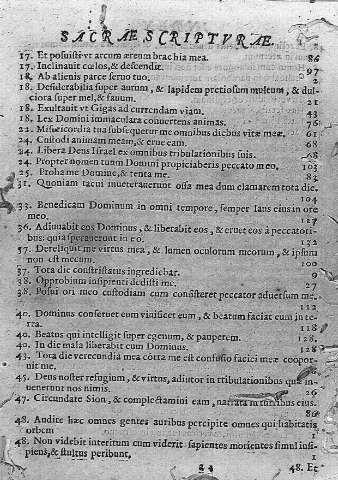 SACRAE SCRIPTVRAE
17. Et posuisti vt arcum æreum brachia mea. 86
17. Inclinauit cœlos, & descendit. 97
18. Ab alienis parce seruo tuo. 2
18. Desiderabilia super aurum, & lapidem pretiosum multum, & dul-
ciora super mel, & fauum. 21
18. Exultauit vt Gigas ad currendam viam. 43
18. Lex Domini immaculata conuertens animas. 76
22. Misericordia tua subsequetur me omnibus diebus vitæ meæ. 61
24. Custodi animam meam, & erue eam. 68
24. Libera Deus Israel ex omnibus tribulationibus suis. 68
24. Propter nomen tuum Domini propiciaberis peccato meo. 103
25. Proba me Domine, & tenta me. 83
31. Quoniam tacui inueterauerunt ossa mea dum clamarem tota die.
104
33. Benedicam Dominum in omni tempore, semper laus eius in ore
meo. 117
36. Adiuuabit eos Dominus, & liberabit eos, & eruet eos à peccatori-
bus: quia sperauerunt in eo. 132
37. Dereliquit me virtus mea, & lumen oculorum meorum, & ipsum
non est mecum. 100
37. Tota die constristatus ingrediebar. 9
38. Opprobium insipienti dedisti me. 27
38. Posui ori meo custodiam cum consisteret peccator aduersum me.
112
40. Dominus conseruet eum viuificet eum, & beatum faciat eum in te-
rra. 118
40. Beatus qui intelligit super egenum, & pauperem. 128
40. In die mala liberabit eum Dominus. 128
43. Tota die verecundia mea côtra me est confusio faciei meæ cooper-
uit me.
45. Deus noster refugium, & virtus, adiutor in tribulationibus quæ in-
uenerunt nos nimis. 26
47. Circundate Sion, & complectamini eam, narrate in turribus eius.
86
48. Audite hæc omnes gentes auribus percipite omnes qui habitatis
orbem 1
48. Non videbit interitum cum viderit sapientes morientes simul insi-
piens, & stultus peribunt. 1
48. Et